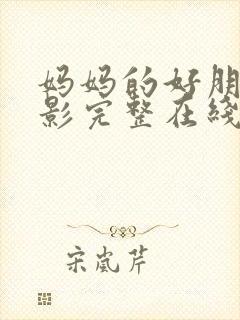 妈妈的好朋
影完整在线
宋岚芹